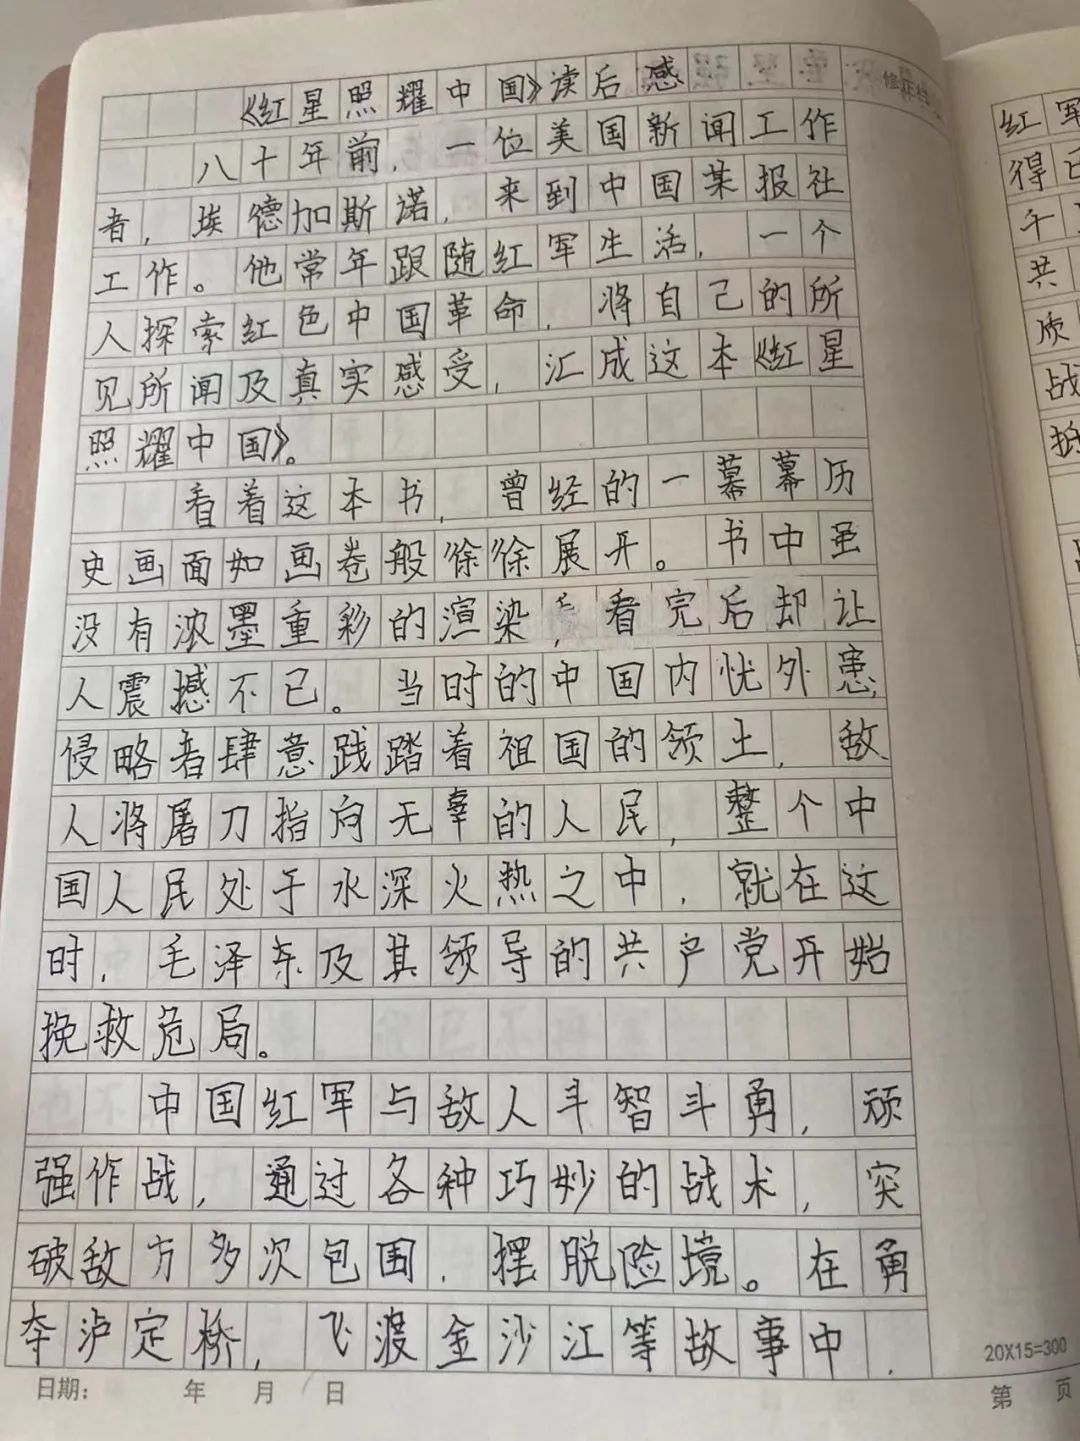 《红星照耀中国》读后感
修正栏
八十年前，一位美国新闻工作
者，埃德加斯诺，来到中国某报社
工作。他常年跟随红军生活，一个
人探索红色中国革命，将自己的所
见所闻及真实感受，汇成这本《红星
照耀中国》。
看着这本书，曾经的一幕幕历
史画面如画卷般徐徐展开。书中虽
没有浓墨重彩的渲染，看完后却让
人震撼不已。当时的中国内忧外患，
侵略者肆意践踏着祖国的领土，敌
人将屠刀指向无辜的人民，整个中
国人民处于水深火热之中，就在这
时，毛泽东及其领导的共产党开始
挽救危局。
中国红军与敌人斗智斗勇，顽
强作战，通过各种巧妙的战术，突
破敌方多次包围，摆脱险境。在勇
夺泸定桥，飞渡金沙江等故事中，
20X15=300
日期： 年 月 日
第 页
红军
得已
千
共
质
战